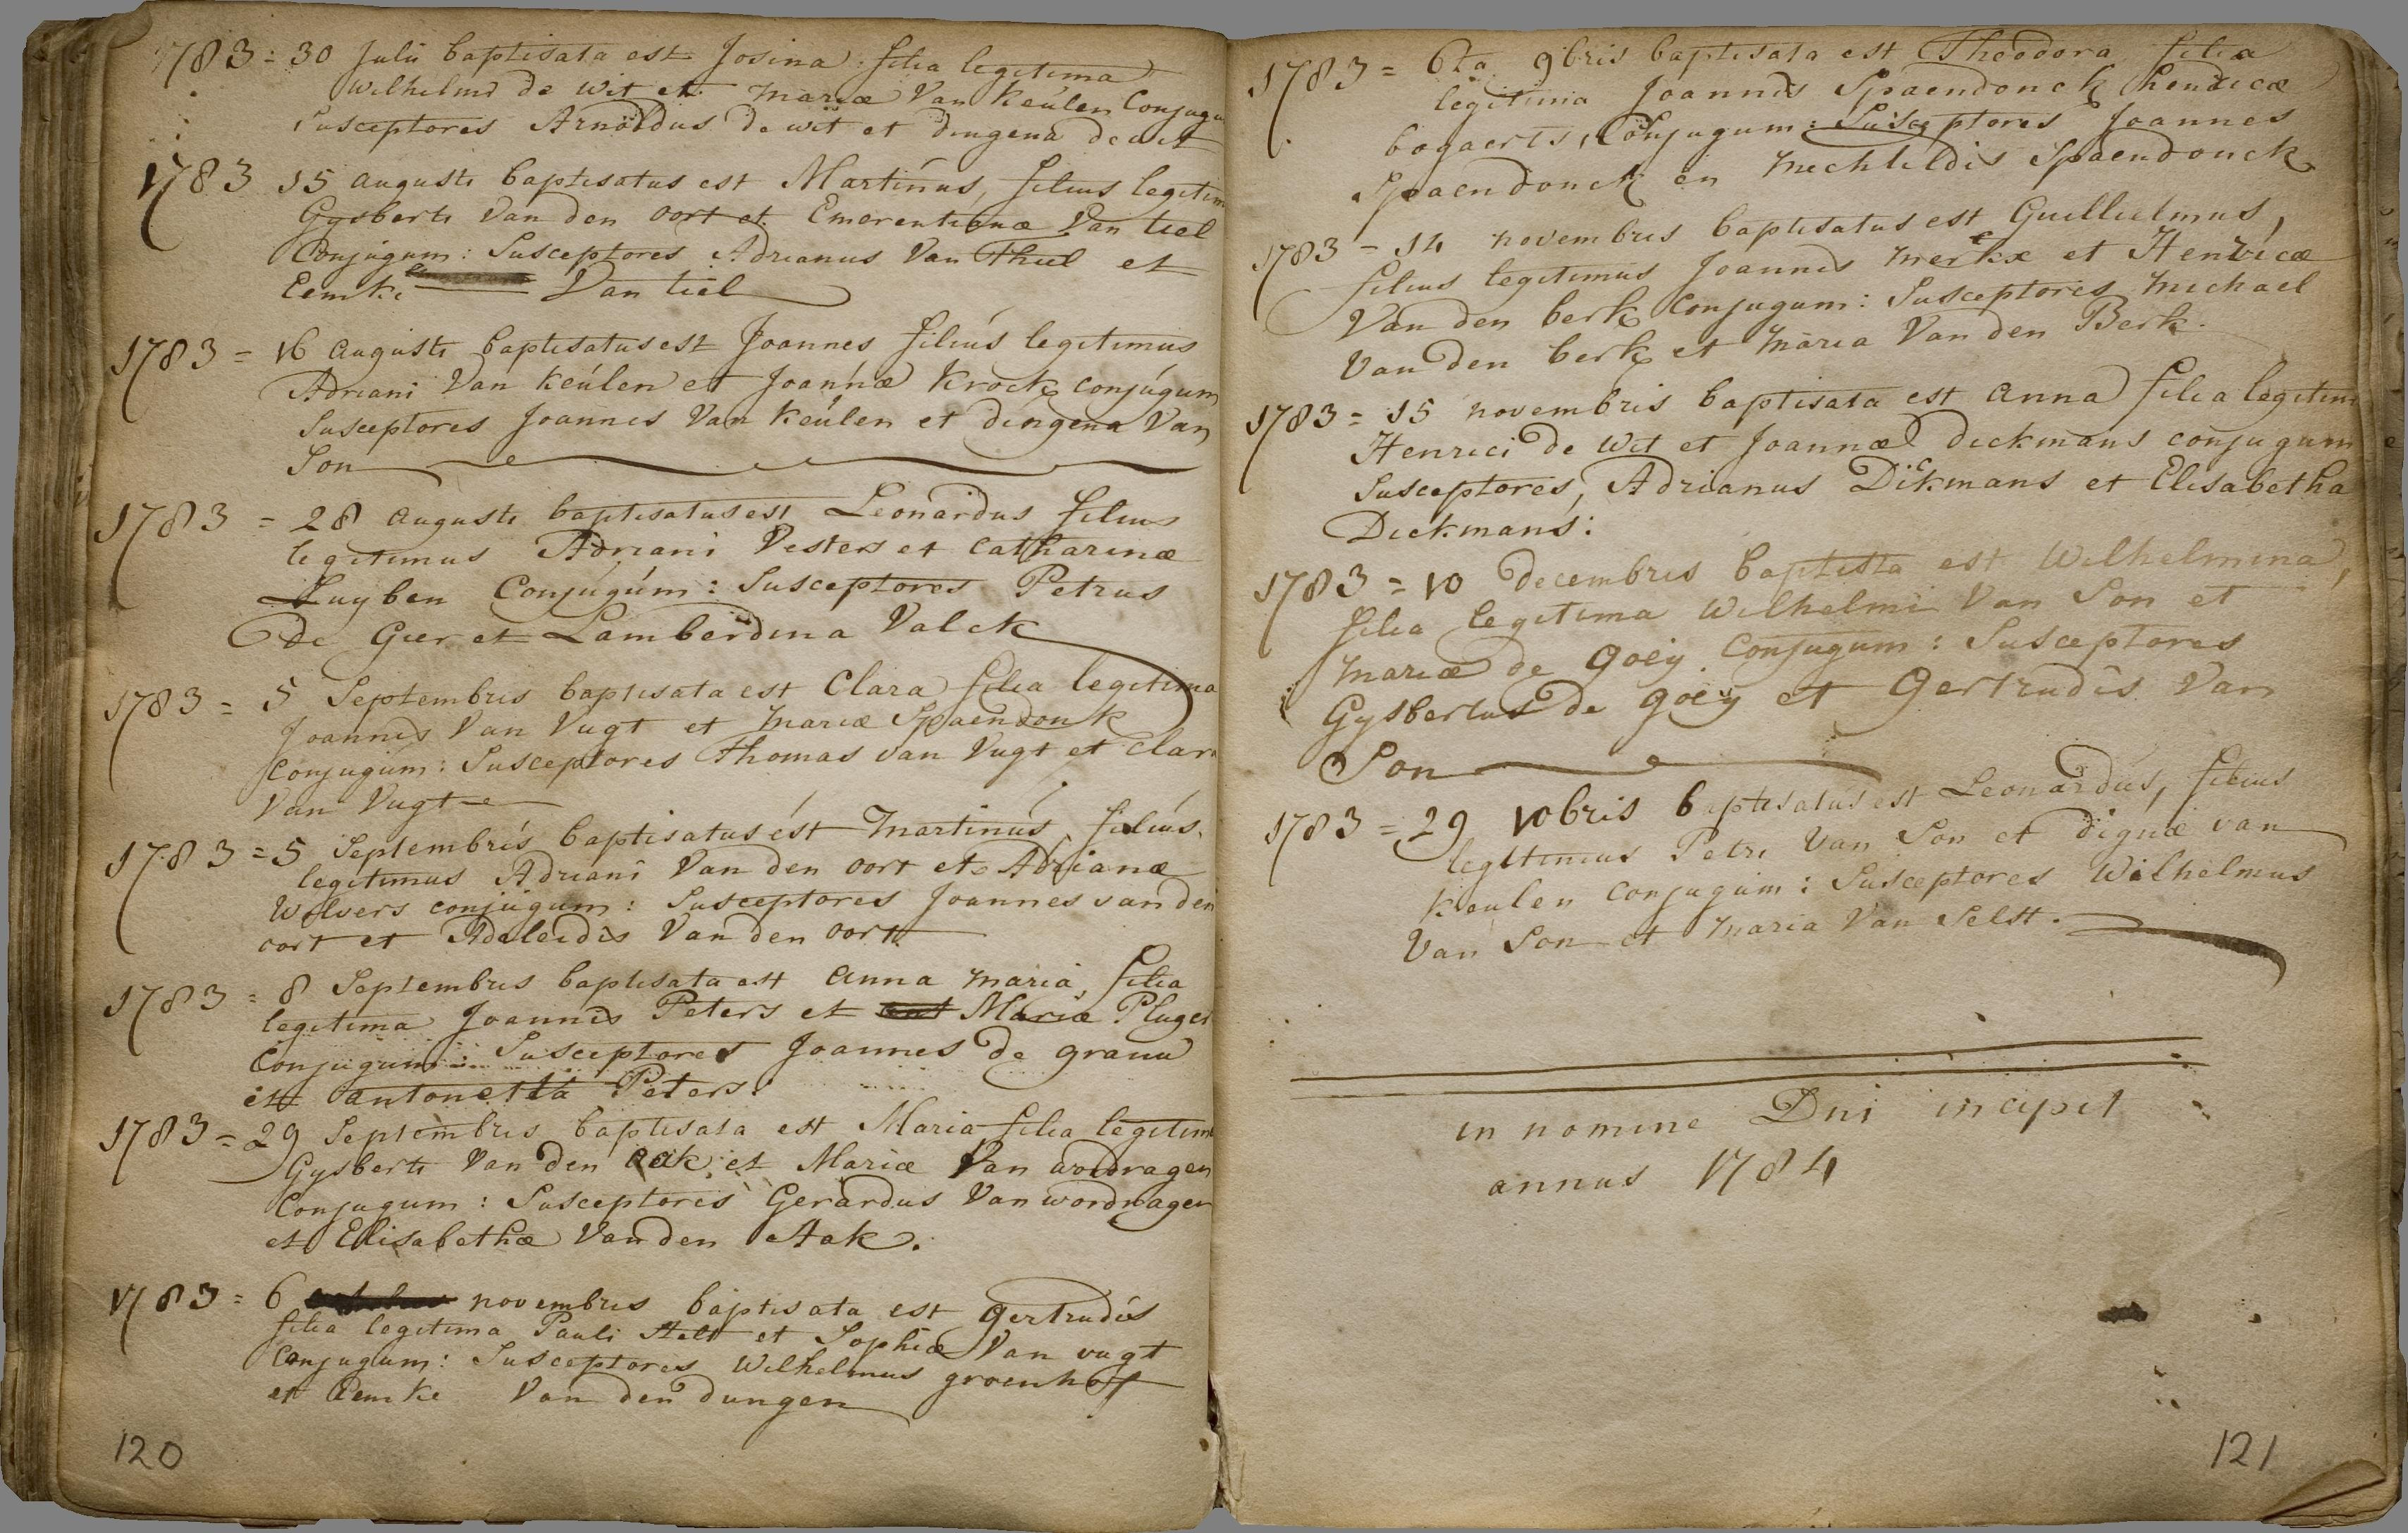 1783 = 30 Julii baptisata est Josina filia legitima
Wilhelmi de Wit et Mariæ Van Keulen Conjugu
Susceptores Arnoldus de wit et dingena de wit
1783 15 augusti baptisatus est Martinus, filius legitim
Gysberti Van den oort et Emerentianæ Van tiel
Conjugum: Susceptores Adrianus Van Thiel et
Eemke Van tiel
1783 = 16 augusti baptisatus est Joannes filius legitimus
Adriani Van Keulen et Joannæ Krock conjugum
Susceptores Joannes Van Keulen et dingena Van
Son
1783 = 28 augusti baptisatus est Leonardus filius
legitimus Adriani Vesters et catharinæ
Luyben Conjugum: Susceptores Petrus
De Gier et Lamberdina Valck
1783 = 5 Septembris baptisata est Clara filia legitima
Joannis Van Vugt et Mariæ Spaendonk
Conjugum: Susceptores Thomas van Vugt et Clara
Van Vugt
1783 = 5 Septembris baptisatus est Martinus, filius
legitimus Adriani Van den oort et Adrianæ
Wolvers conjugum: Susceptores Joannes van den
oort et Adeleidis Van den oort
1783 = 8 Septembris baptisata est anna maria, filia
legitima Joannis Peters et Mariæ Pluger
Conjugum: Susceptores Joannes de
et antonetta Peters:
1783 = 29 Septembris baptisata est Maria filia legitim
Gysberti Van den aak et Mariæ Van wordragen
Conjugum: Susceptores Gerardus Van wordragen
et Elisabethæ Van den Aak.
1783 = 6 novembris baptisata est gertrudis
filia legitima Pauli et Sophiæ Van vugt
Conjugum: Susceptores Wilhelmus groenhof
et Eemke Van den dungen
120
1783 = 6ta 9bris baptisata est Theodora filia
legitima Joannis Spaendonck hendricæ
bogaerts, Conjugum: Susceptores Joannes
Spaendonck en Mechtildis Spaendonck
1783 = 14 novembris baptisatus est Guillielmus,
filius legitimus Joannis Merkx et Henricæ
Van den berk Conjugum: Susceptores Michael
Van den berk et Maria Van den Berk.
1783 = 15 novembris baptisata est anna filia legitim
Henrici de Wit et Joannæ dickmans conjugum
Susceptores, Adrianus Dickmans et Elisabetha
Dickmans:
1783 = 10 Decembris baptista est Wilhelmina,
filia legitima Wilhelmi Van Son et
Mariæ de goëy Conjugum: Susceptores
Gysbertus de goëy et gertrudis Van
Son
1783 = 29 10bris baptisatus est Leonardus, filius
legitimus Petri Van Son et dignæ van
Keulen conjugum: Susceptores Wilhelmus
Van Son et Maria Van Selst.
in nomine Dni incipit
annus 1784
121